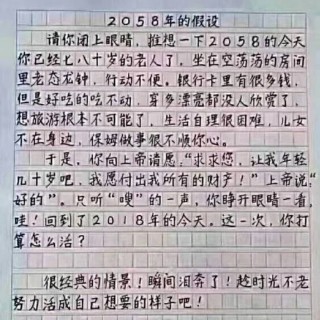 2058年的假设
请你闭上眼睛，推想一下2058的今天
你已经七八十岁的老人了，坐在空荡荡的房间
里老态龙钟，行动不便。银行卡里有很多钱，
但是好吃的吃不动，穿多漂亮都没人欣赏了，
想旅游根本不可能了，生活自理很困难，儿女
不在身边，保姆做事很不顺你心。
于是，你向上帝请愿，“求求您，让我年轻
几十岁吧，我愿付出我所有的财产！”上帝说，“
好的”。只听“嗖”的一声，你睁开眼睛一看，
哇！回到了2018年的今天。这一次，你打
算怎么活？
很经典的情景！瞬间泪奔了！趁时光不老
努力活成自己想要的样子吧！